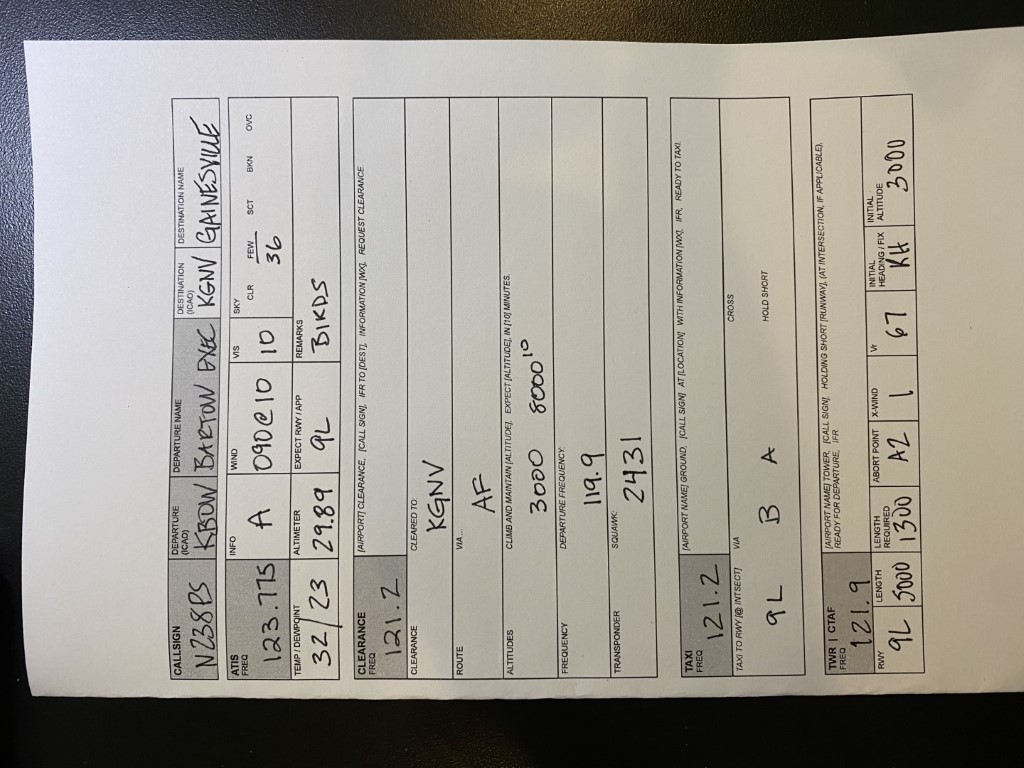 CALLSIGN DEPARTURE (ICAO) DEPARTURE NAME DESTINATION (ICAO) DESTINATION NAME
N238PS KBOW BARTOW EXEC KGNV GAINESVILLE
ATIS FREQ INFO WIND VIS SKY CLR FEW SCT BKN OVC
123.775 A 090@10 10 36
TEMP / DEWPOINT ALTIMETER EXPECT RWY / APP REMARKS
32/23 29.89 9L BIRDS
CLEARANCE FREQ [AIRPORT] CLEARANCE, [CALL SIGN], IFR TO [DEST], INFORMATION [WX], REQUEST CLEARANCE.
121.2
CLEARANCE CLEARED TO:
KGNV
ROUTE VIA...
AF
ALTITUDES CLIMB AND MAINTAIN [ALTITUDE], EXPECT [ALTITUDE], IN [10] MINUTES.
3000 8000 10
FREQUENCY DEPARTURE FREQUENCY:
119.9
TRANSPONDER SQUAWK:
2431
TAXI FREQ [AIRPORT NAME] GROUND, [CALL SIGN] AT [LOCATION] WITH INFORMATION [WX], IFR, READY TO TAXI.
121.2
TAXI TO RWY [@ INTSECT] VIA CROSS
9L B A HOLD SHORT
TWR | CTAF FREQ [AIRPORT NAME] TOWER, [CALL SIGN] HOLDING SHORT [RUNWAY], (AT INTERSECTION, IF APPLICABLE),
READY FOR DEPARTURE, IFR
121.9
RWY LENGTH LENGTH REQUIRED ABORT POINT X-WIND Vr INITIAL HEADING / FIX INITIAL ALTITUDE
9L 5000 1300 A2 1 67 RH 3000